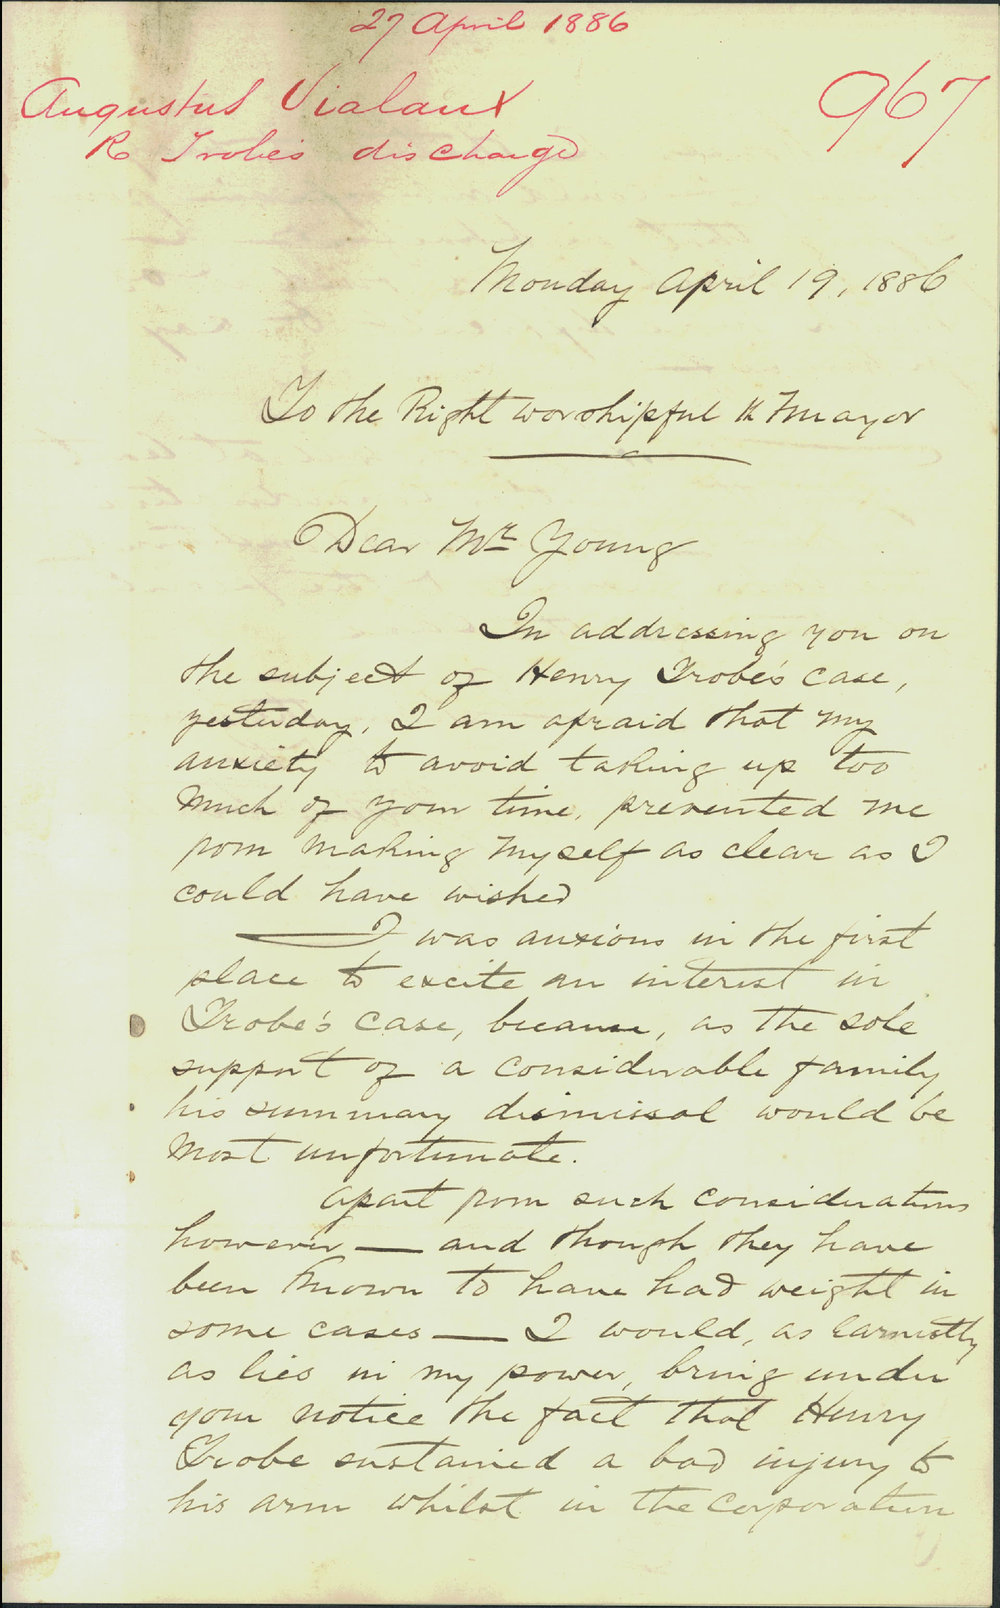 27 April 1886
Augustus Vialaux
967
Re Trobe's discharge
Monday April 19, 1886
To the Right worshipful the Mayor
Dear Mr Young
In addressing you on
the subject of Henry Trobe's case,
yesterday, I am afraid that my
anxiety to avoid taking up too
much of your time, prevented me
from making myself as clear as I
could have wished
I was anxious in the first
place to excite an interest in
Trobe's case, because, as the sole
support of a considerable family
his summary dismissal would be
most unfortunate.
Apart from such considerations
however — and though they have
been known to have had weight in
some cases — I would, as earnestly
as lies in my power, bring under
your notice the fact that Henry
Trobe sustained a bad injury to
his arm whilst in the Corporation